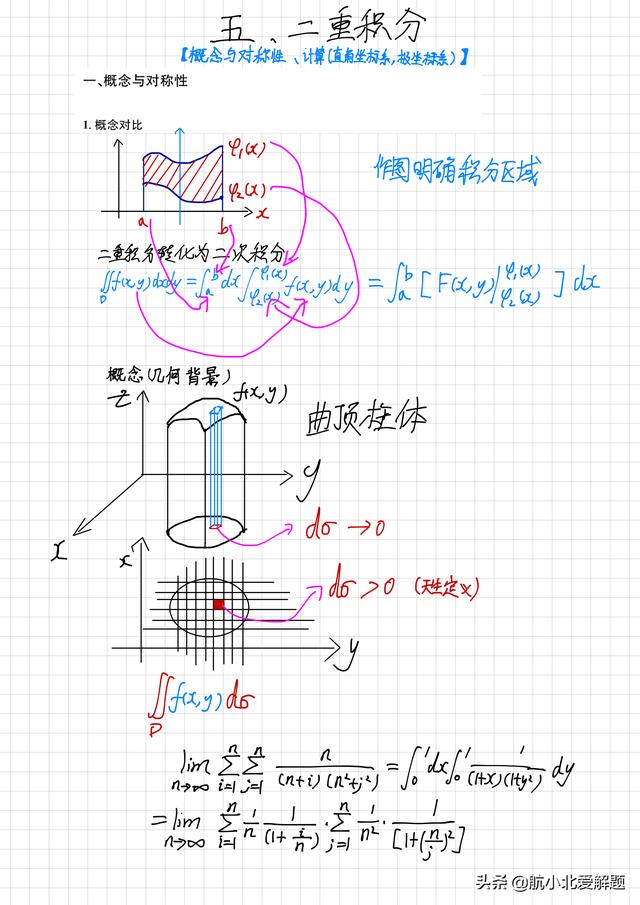 五、二重积分
【概念与对称性、计算(直角坐标系,极坐标系)】
一、概念与对称性
1. 概念对比
φ₁(x)
φ₂(x)
a b x
作图明确积分区域
二重积分转化为二次积分
∬_D f(x,y)dxdy = ∫_a^b dx ∫_{φ₂(x)}^{φ₁(x)} f(x,y)dy = ∫_a^b [F(x,y)|_{φ₂(x)}^{φ₁(x)}] dx
概念(几何背景)
z
f(x,y)
曲顶柱体
y
x
dσ → 0
x
dσ > 0 (天生定义)
y
∬_D f(x,y) dσ
lim_{n→∞} ∑_{i=1}^n ∑_{j=1}^n n/((n+i)(n²+j²)) = ∫_0^1 dx ∫_0^1 1/((1+x)(1+y²)) dy
= lim_{n→∞} ∑_{i=1}^n 1/n · 1/(1+i/n) · ∑_{j=1}^n 1/n² · 1/[1+(n/j)²]
头条 @航小北爱解题